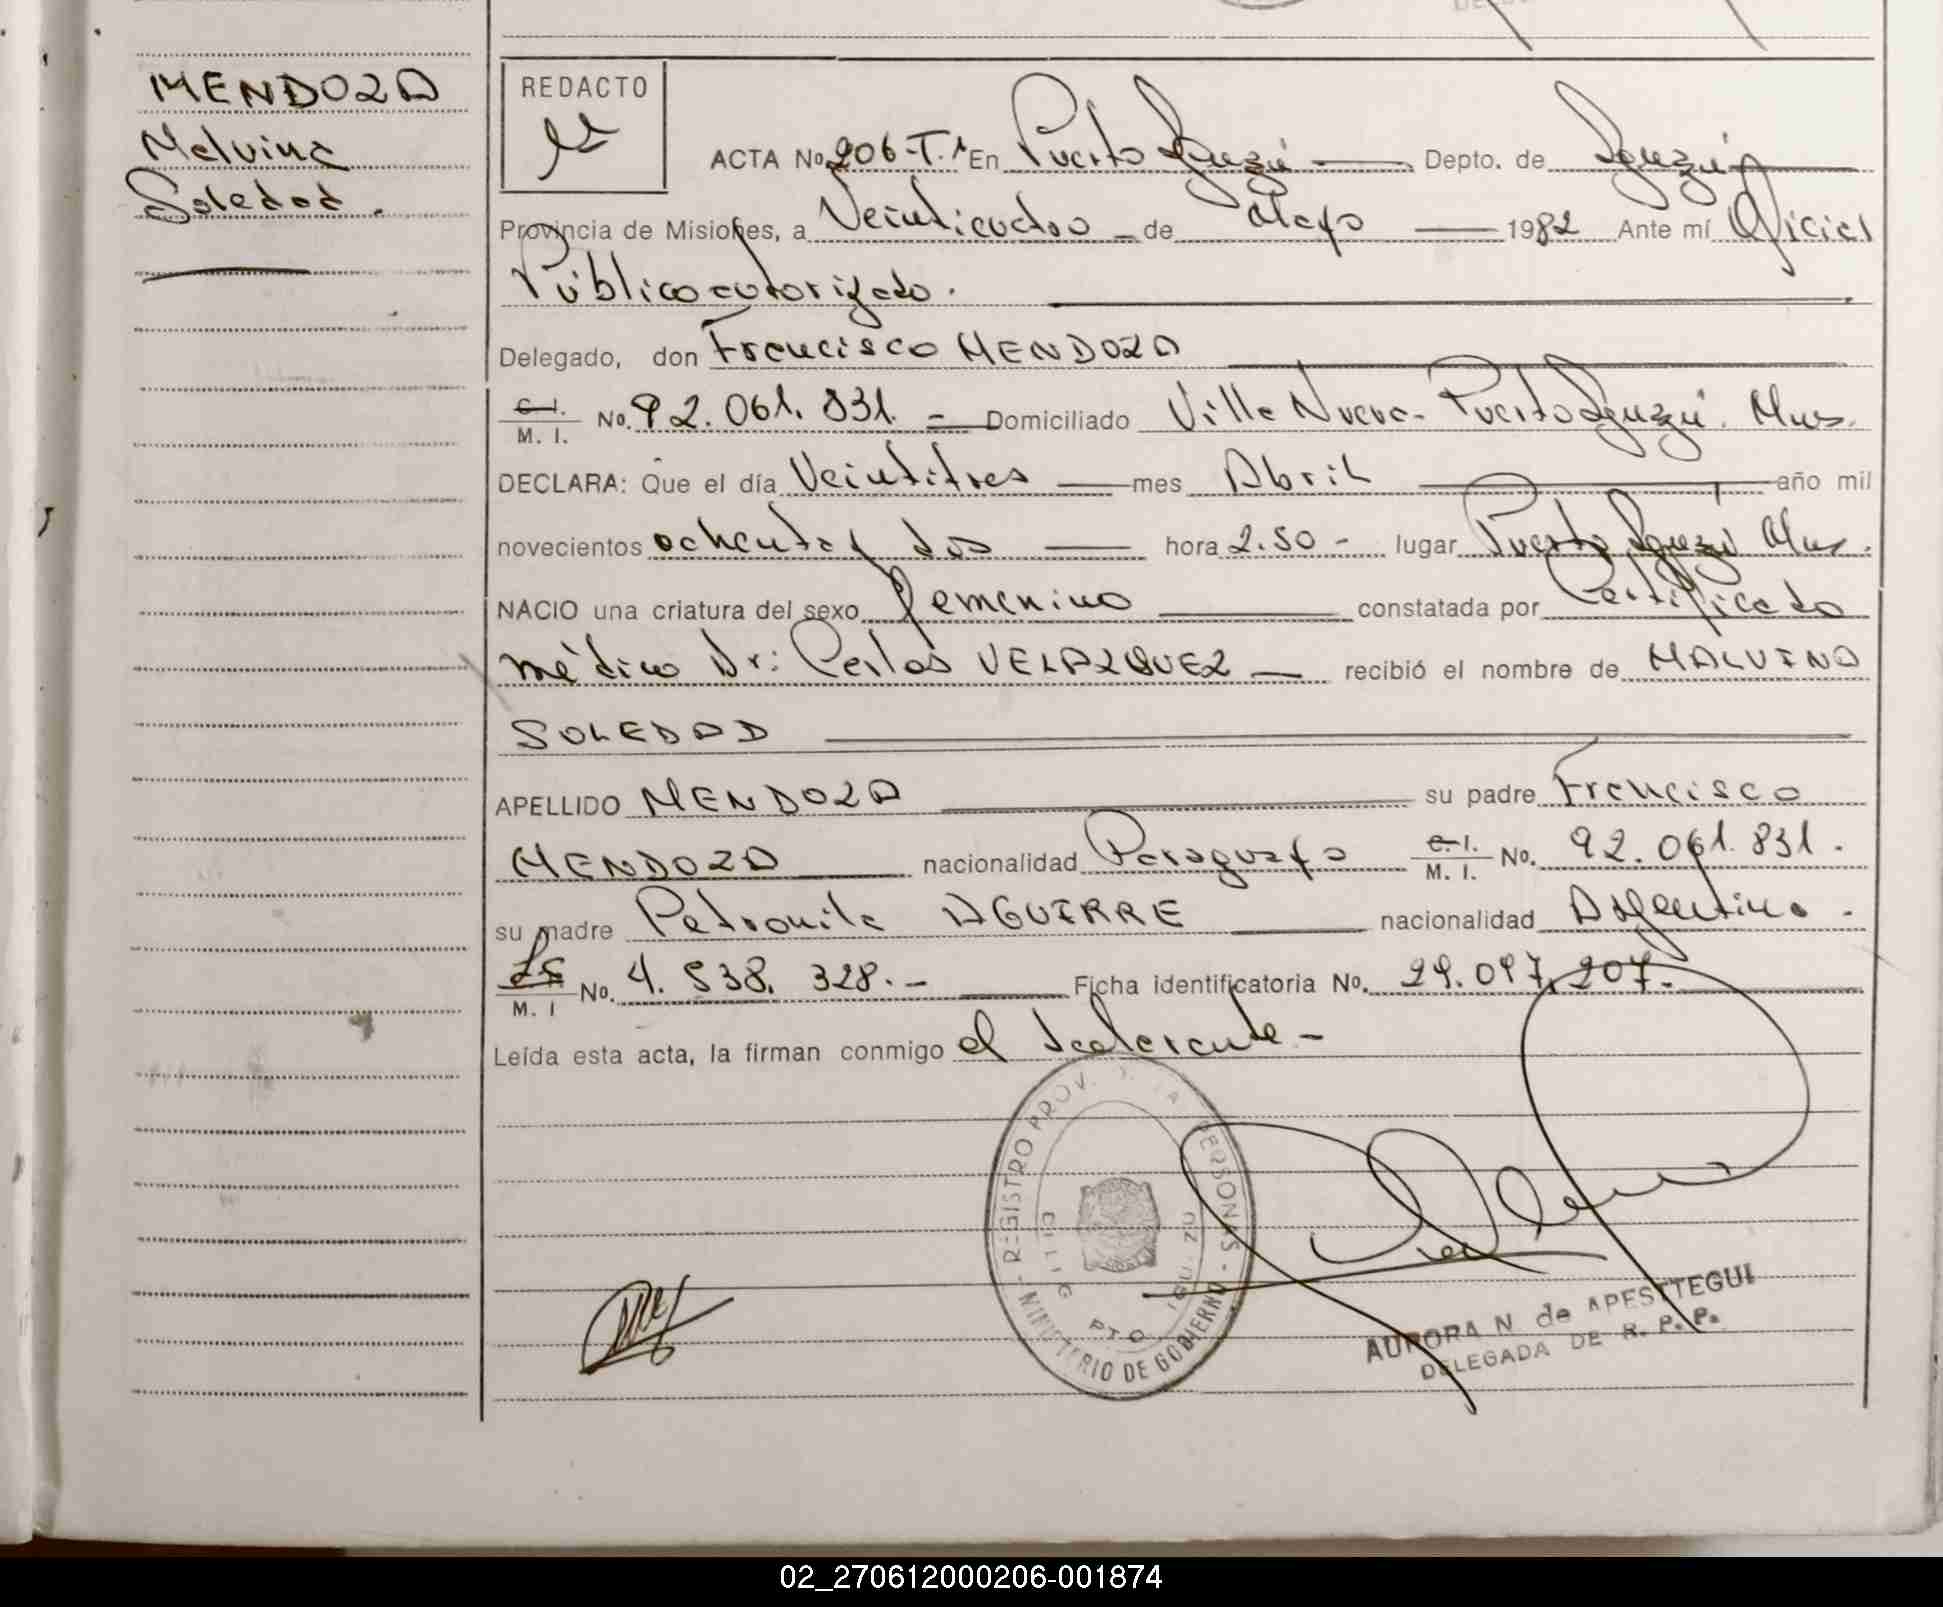 MENDOZA
Malvina
Soledad.
REDACTO
ACTA No 206-T.1 En Puerto Iguazú Depto. de Iguazú
Provincia de Misiones, a Veinticuatro de Mayo 1982 Ante mí Oficial
Público autorizado.
Delegado, don Francisco MENDOZA
C. I.
M. I. No. 92.061.831. Domiciliado Villa Nueva- Puerto Iguazú. Mns.
DECLARA: Que el día Veintitres mes Abril año mil
novecientos ochenta y dos hora 2.50 - lugar Puerto Iguazú Mns.
NACIO una criatura del sexo femenino constatada por Certificado
médico Dr: Carlos VELAZQUEZ recibió el nombre de MALVINA
SOLEDAD
APELLIDO MENDOZA su padre Francisco
MENDOZA nacionalidad Paraguayo C. I.
M. I. No. 92.061.831.
su madre Petronila AGUIRRE nacionalidad Argentina.
M. I No. 4.538.328.- Ficha identificatoria No. 29.097.207.
Leída esta acta, la firman conmigo el declarante-
REGISTRO PROV. PERSONAS - MINISTERIO DE GOBIERNO
PTO. IGUAZU
AURORA N de APESTTEGUI
DELEGADA DE R. P. P.
02_270612000206-001874